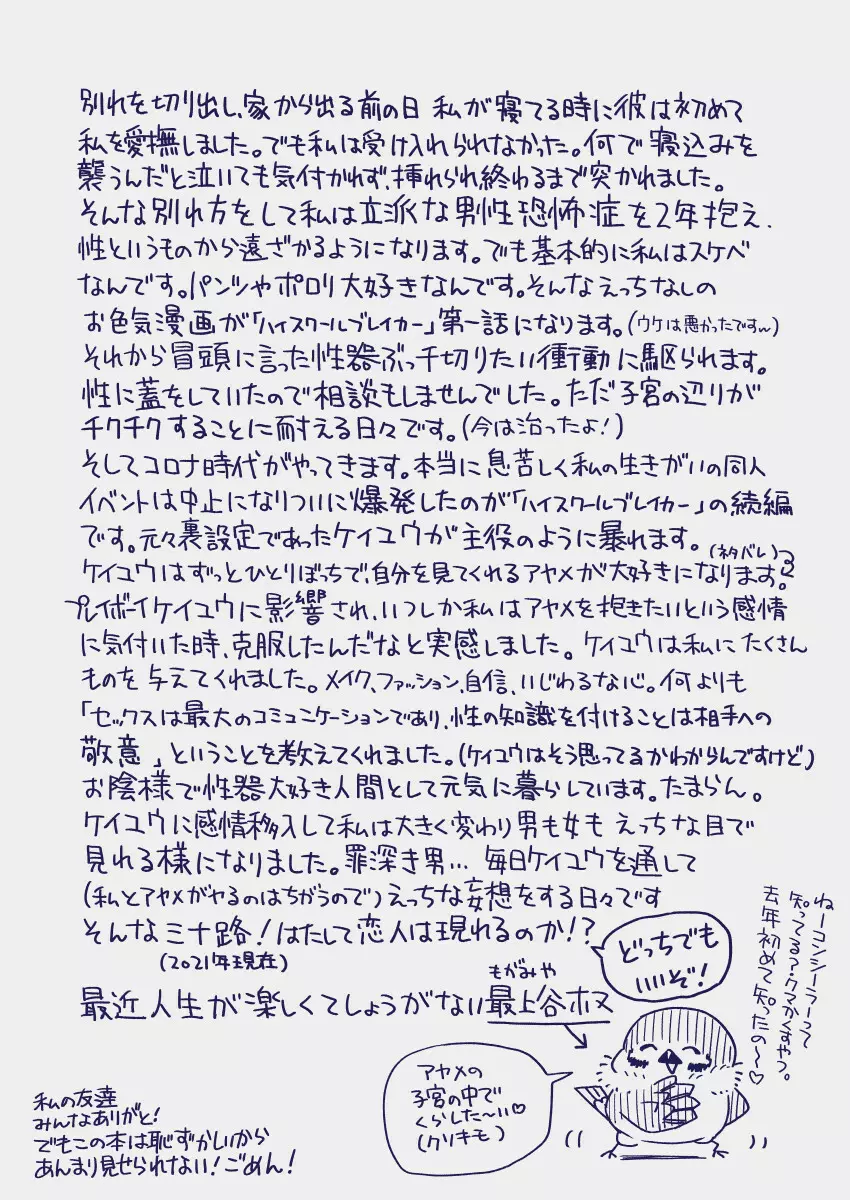 別れを切り出し、家から出る前の日 私が寝てる時に彼は初めて
私を愛撫しました。でも私は受け入れられなかった。何で寝込みを
襲うんだと泣いても気付かれず、挿れられ終わるまで突かれました。
そんな別れ方をして私は立派な男性恐怖症を2年抱え、
性というものから遠ざかるようになります。でも基本的に私はスケベ
なんです。パンツやポロリ大好きなんです。そんなえっちなしの
お色気漫画が「ハイスクールブレイカー」第一話になります。(ウケは悪かったですw)
それから冒頭に言った性器ぶっ千切りたい衝動に駆られます。
性に蓋をしていたので相談もしませんでした。ただ子宮の辺りが
チクチクすることに耐える日々です。(今は治ったよ!)
そしてコロナ時代がやってきます。本当に息苦しく私の生きがいの同人
イベントは中止になりついに爆発したのが「ハイスクールブレイカー」の続編
です。元々裏設定であったケイユウが主役のように暴れます。
(ネタバレ)
ケイユウはずっとひとりぼっちで、自分を見てくれるアヤメが大好きになります。
プレイボーイケイユウに影響され、いつしか私はアヤメを抱きたいという感情
に気付いた時、克服したんだなと実感しました。ケイユウは私にたくさん
ものを与えてくれました。メイク、ファッション、自信、いじわるな心。何よりも
「セックスは最大のコミュニケーションであり、性の知識を付けることは相手への
敬意」ということを教えてくれました。(ケイユウはそう思ってるかわからんですけど)
お陰様で性器大好き人間として元気に暮らしています。たまらん。
ケイユウに感情移入して私は大きく変わり男も女も えっちな目で
見れる様になりました。罪深き男… 毎日ケイユウを通して
(私とアヤメがヤるのはちがうので)えっちな妄想をする日々です
そんなミ十路!はたして恋人は現れるのか!?
(2021年現在)
どっちでも
いいぞ!
もがみや
最近人生が楽しくてしょうがない最上谷ホヌ
ねーコンシーラーって
知ってる?クマかくすやつ。
去年初めて知ったの〜♡
アヤメの
子宮の中で
くらした〜い♡
(クソキモ)
私の友達
みんなありがと!
でもこの本は恥ずかしいから
あんまり見せられない!ごめん!